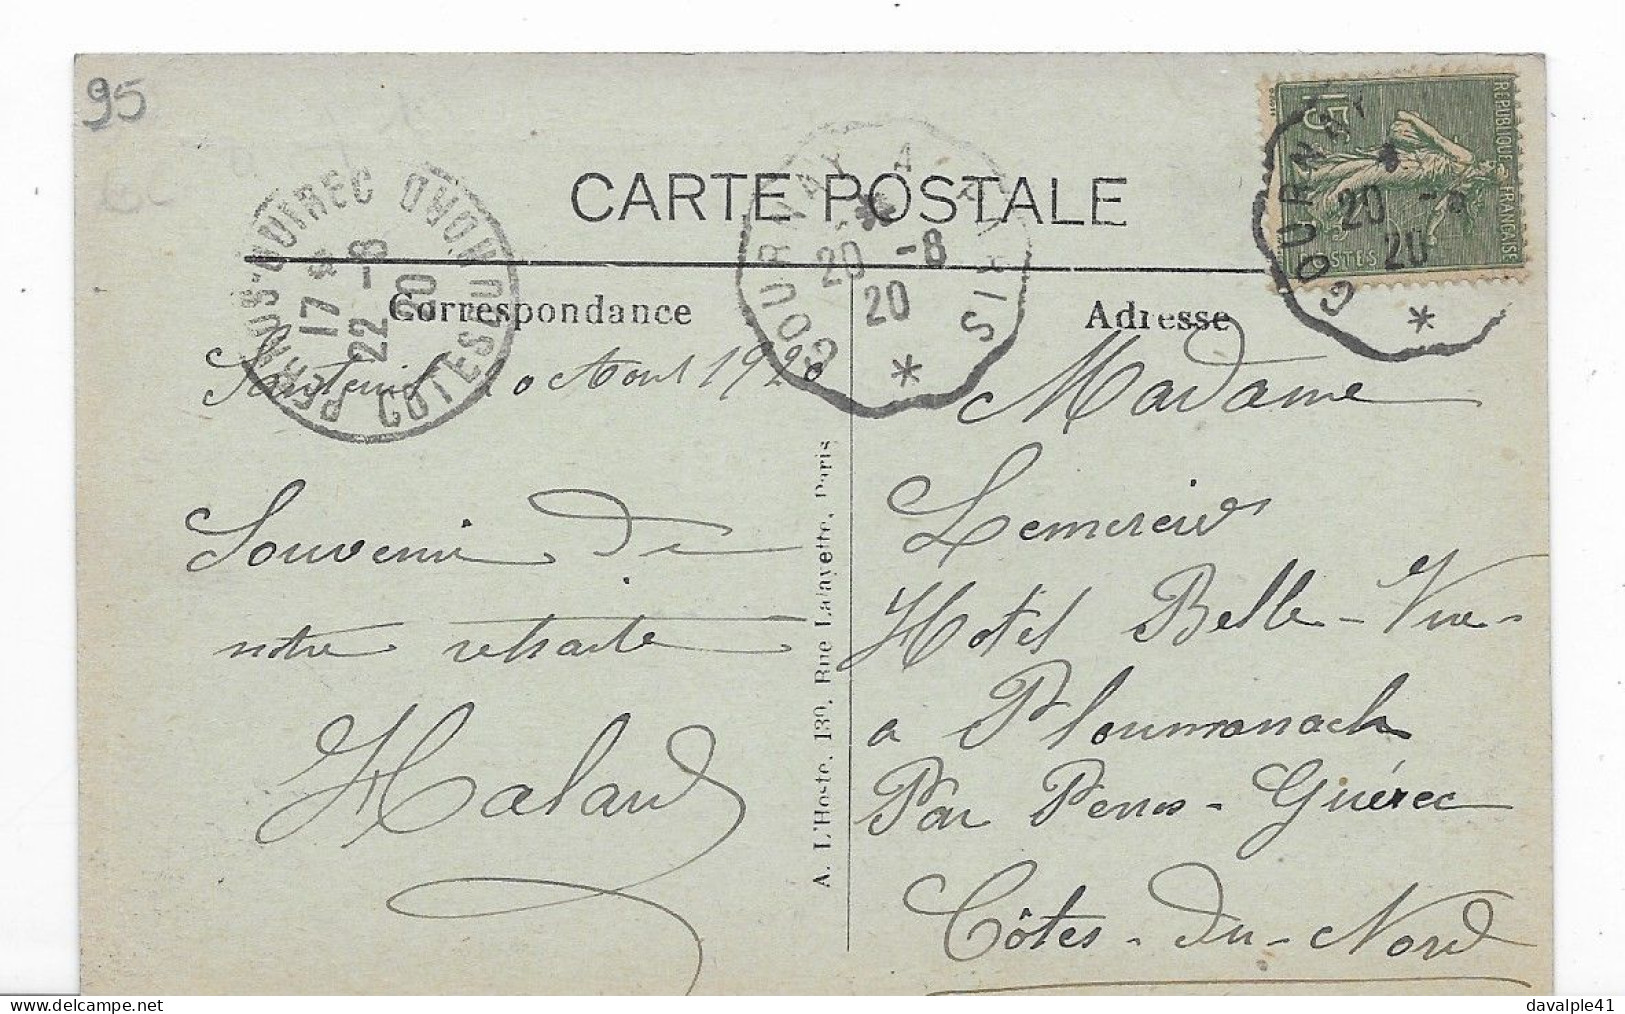 95
CARTE POSTALE
PERROS-GUIREC COTES DU NORD
17 *
22 -8
20
GOURNAY A PARIS
20 -8
20
*
GOURNAY
20 -8
20
*
RÉPUBLIQUE FRANÇAISE
15
POSTES
Correspondance
Adresse
Août 1920
Souvenir de
notre retraite
Halard
A. L'Hoste, 139, Rue Lafayette, Paris
Madame
Lemercier
Hotel Belle-Vue-
a Ploumanach
Par Perros-Guérec
Côtes-du-Nord
davalple41